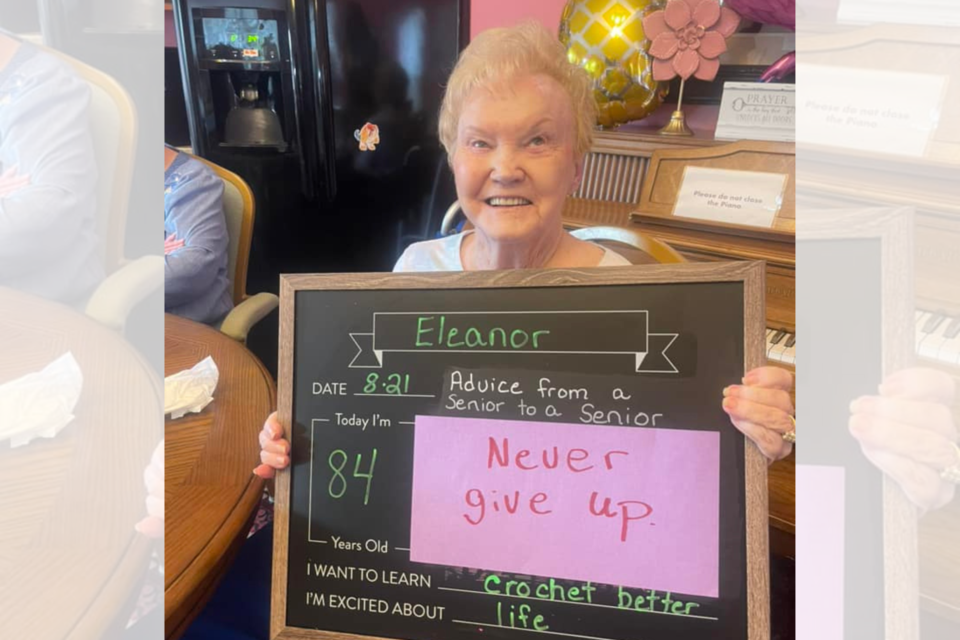 PRAYER
Please do not close
the Piano
Eleanor
DATE 8·21
Advice from a
Senior to a Senior
Today I'm
84
Years Old
Never
give up.
I WANT TO LEARN crochet better
I'M EXCITED ABOUT life